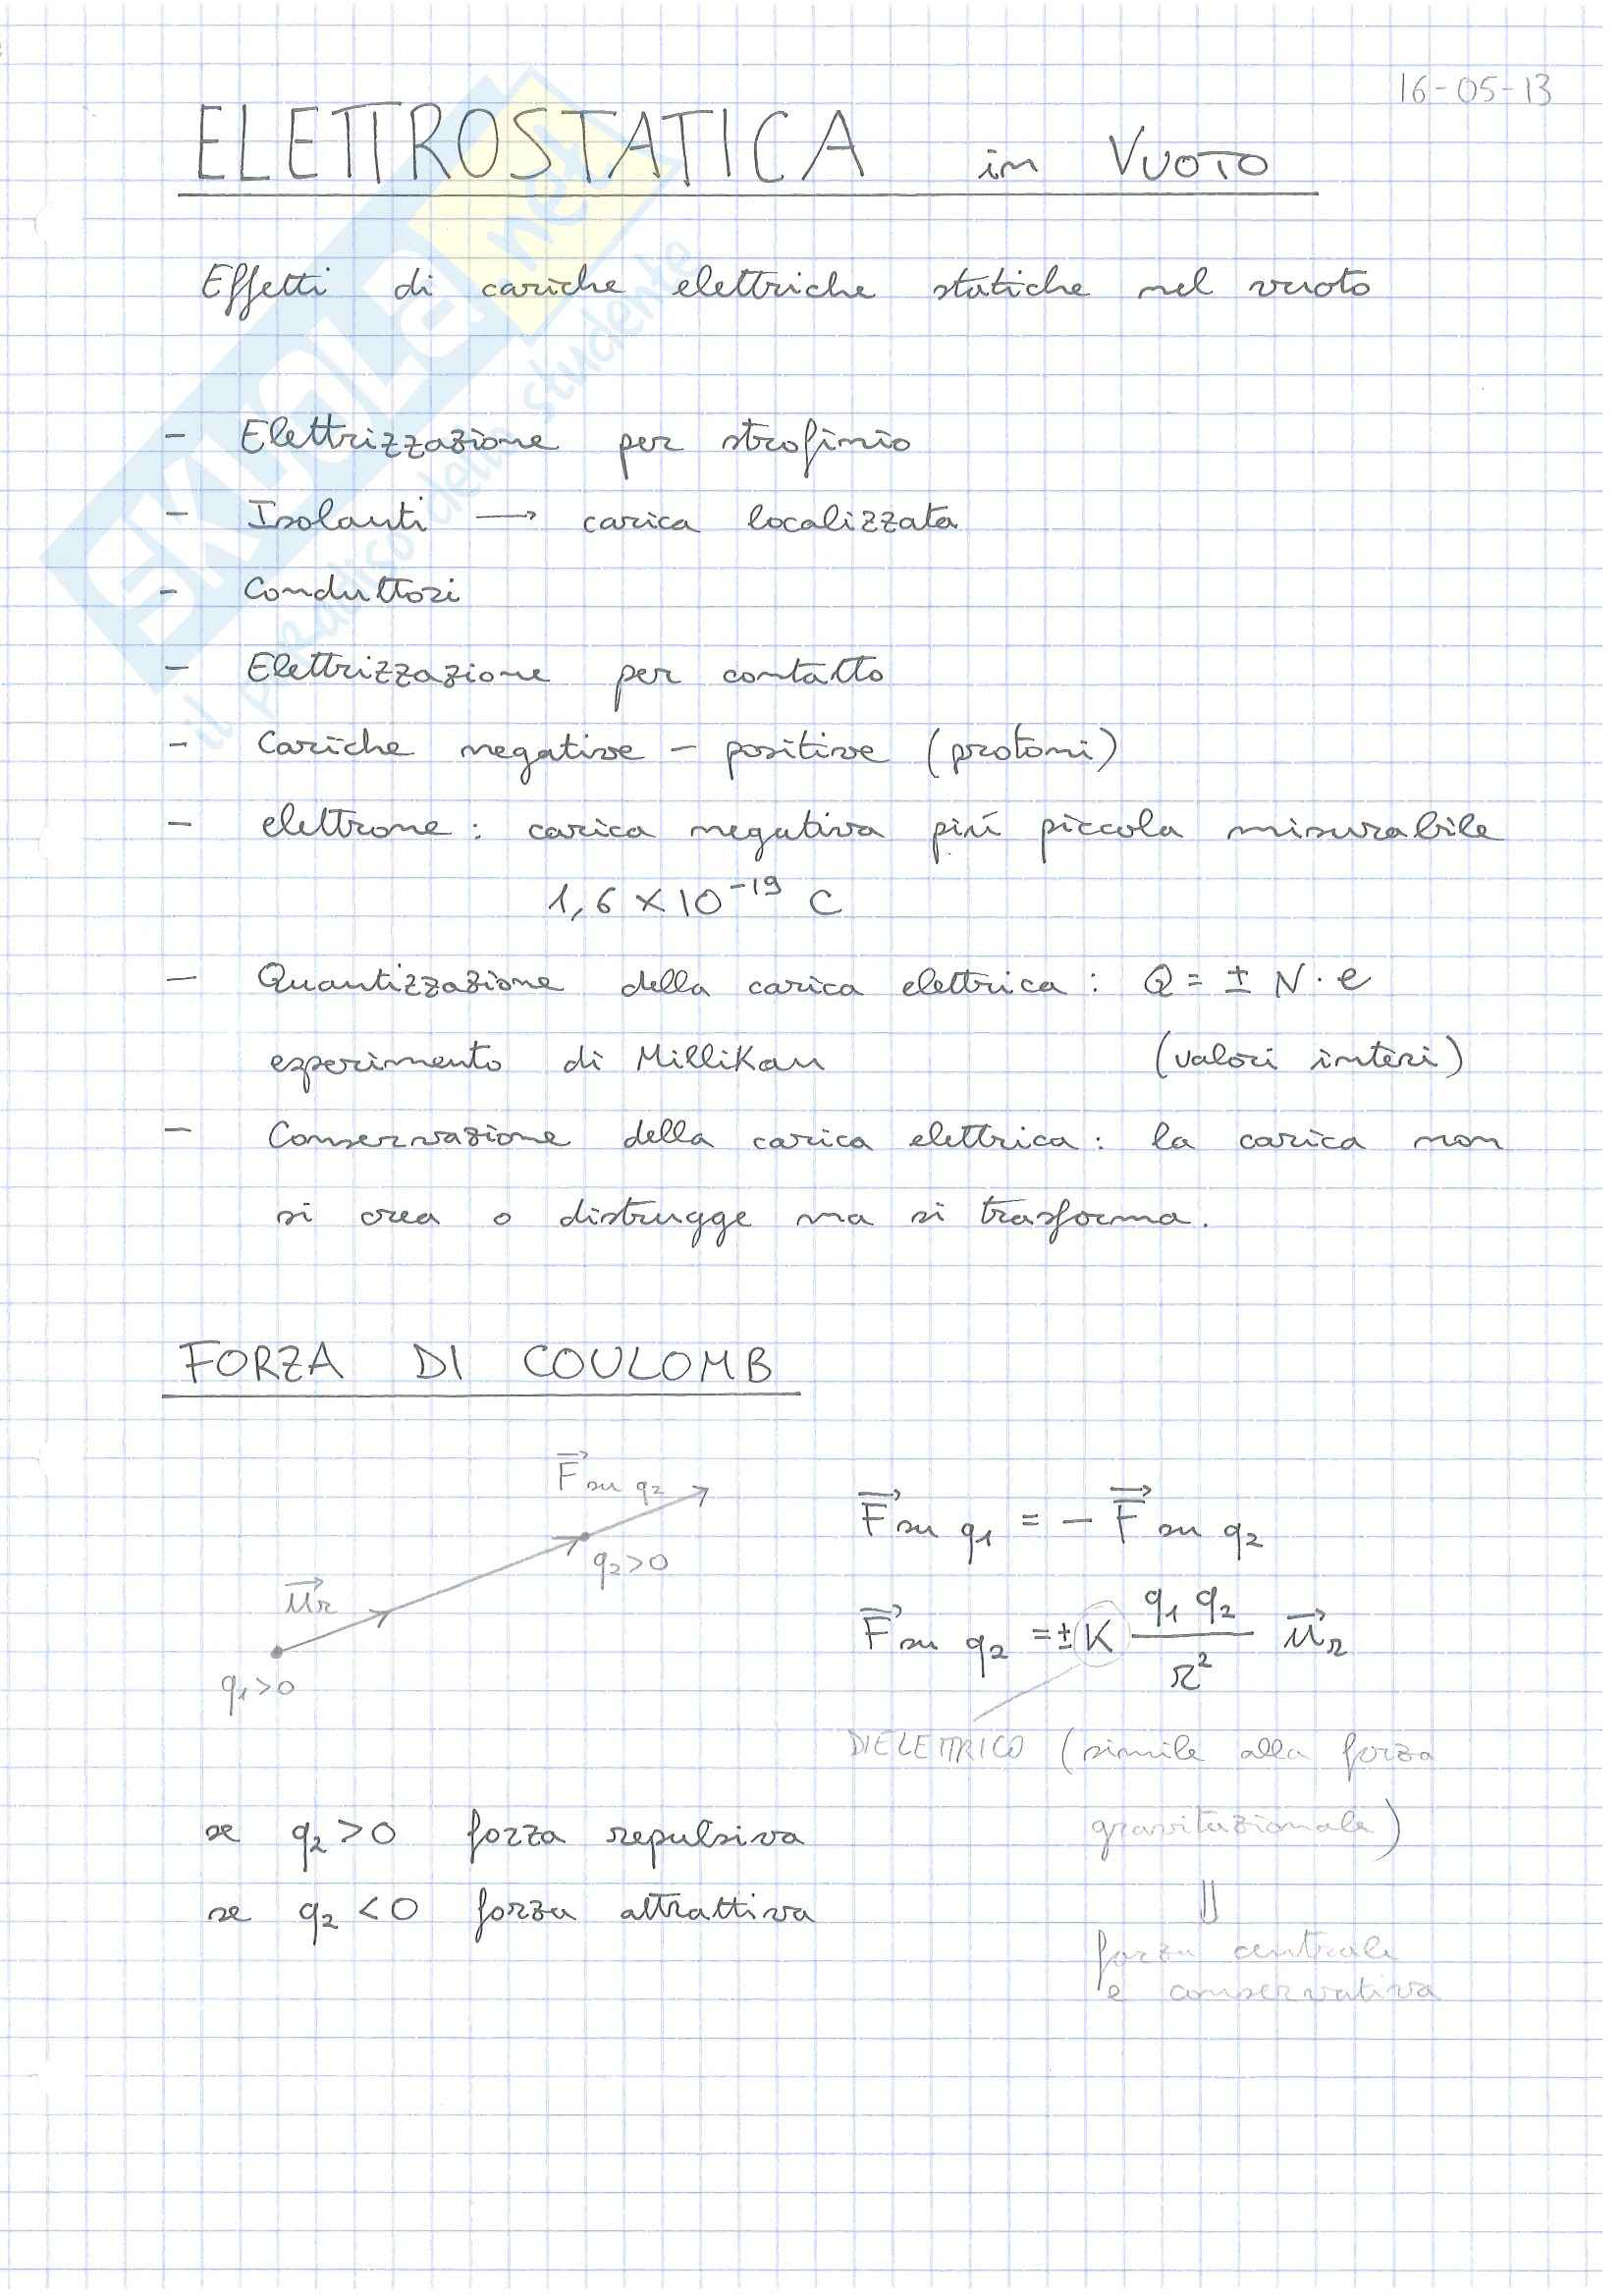 16-05-13
ELETTROSTATICA in VUOTO
Effetti di cariche elettriche statiche nel vuoto
- Elettrizzazione per strofinio
- Isolanti → carica localizzata
- Conduttori
- Elettrizzazione per contatto
- Cariche negative - positive (protoni)
- elettrone: carica negativa più piccola misurabile
1,6 × 10⁻¹⁹ C
- Quantizzazione della carica elettrica: Q = ± N · e
esperimento di Millikan (valori interi)
- Conservazione della carica elettrica: la carica non
si crea o distrugge ma si trasforma.
FORZA DI COULOMB
F⃗ su q₂
q₂>0
u⃗r
q₁>0
F⃗ su q₁ = - F⃗ su q₂
F⃗ su q₂ = ± K q₁ q₂ / r² u⃗r
DIELETTRICO (simile alla forza
gravitazionale)
se q₂ > 0 forza repulsiva
se q₂ < 0 forza attrattiva
⇓
forza centrale
e conservativa
SKUOLA.net
il paradiso dello studente